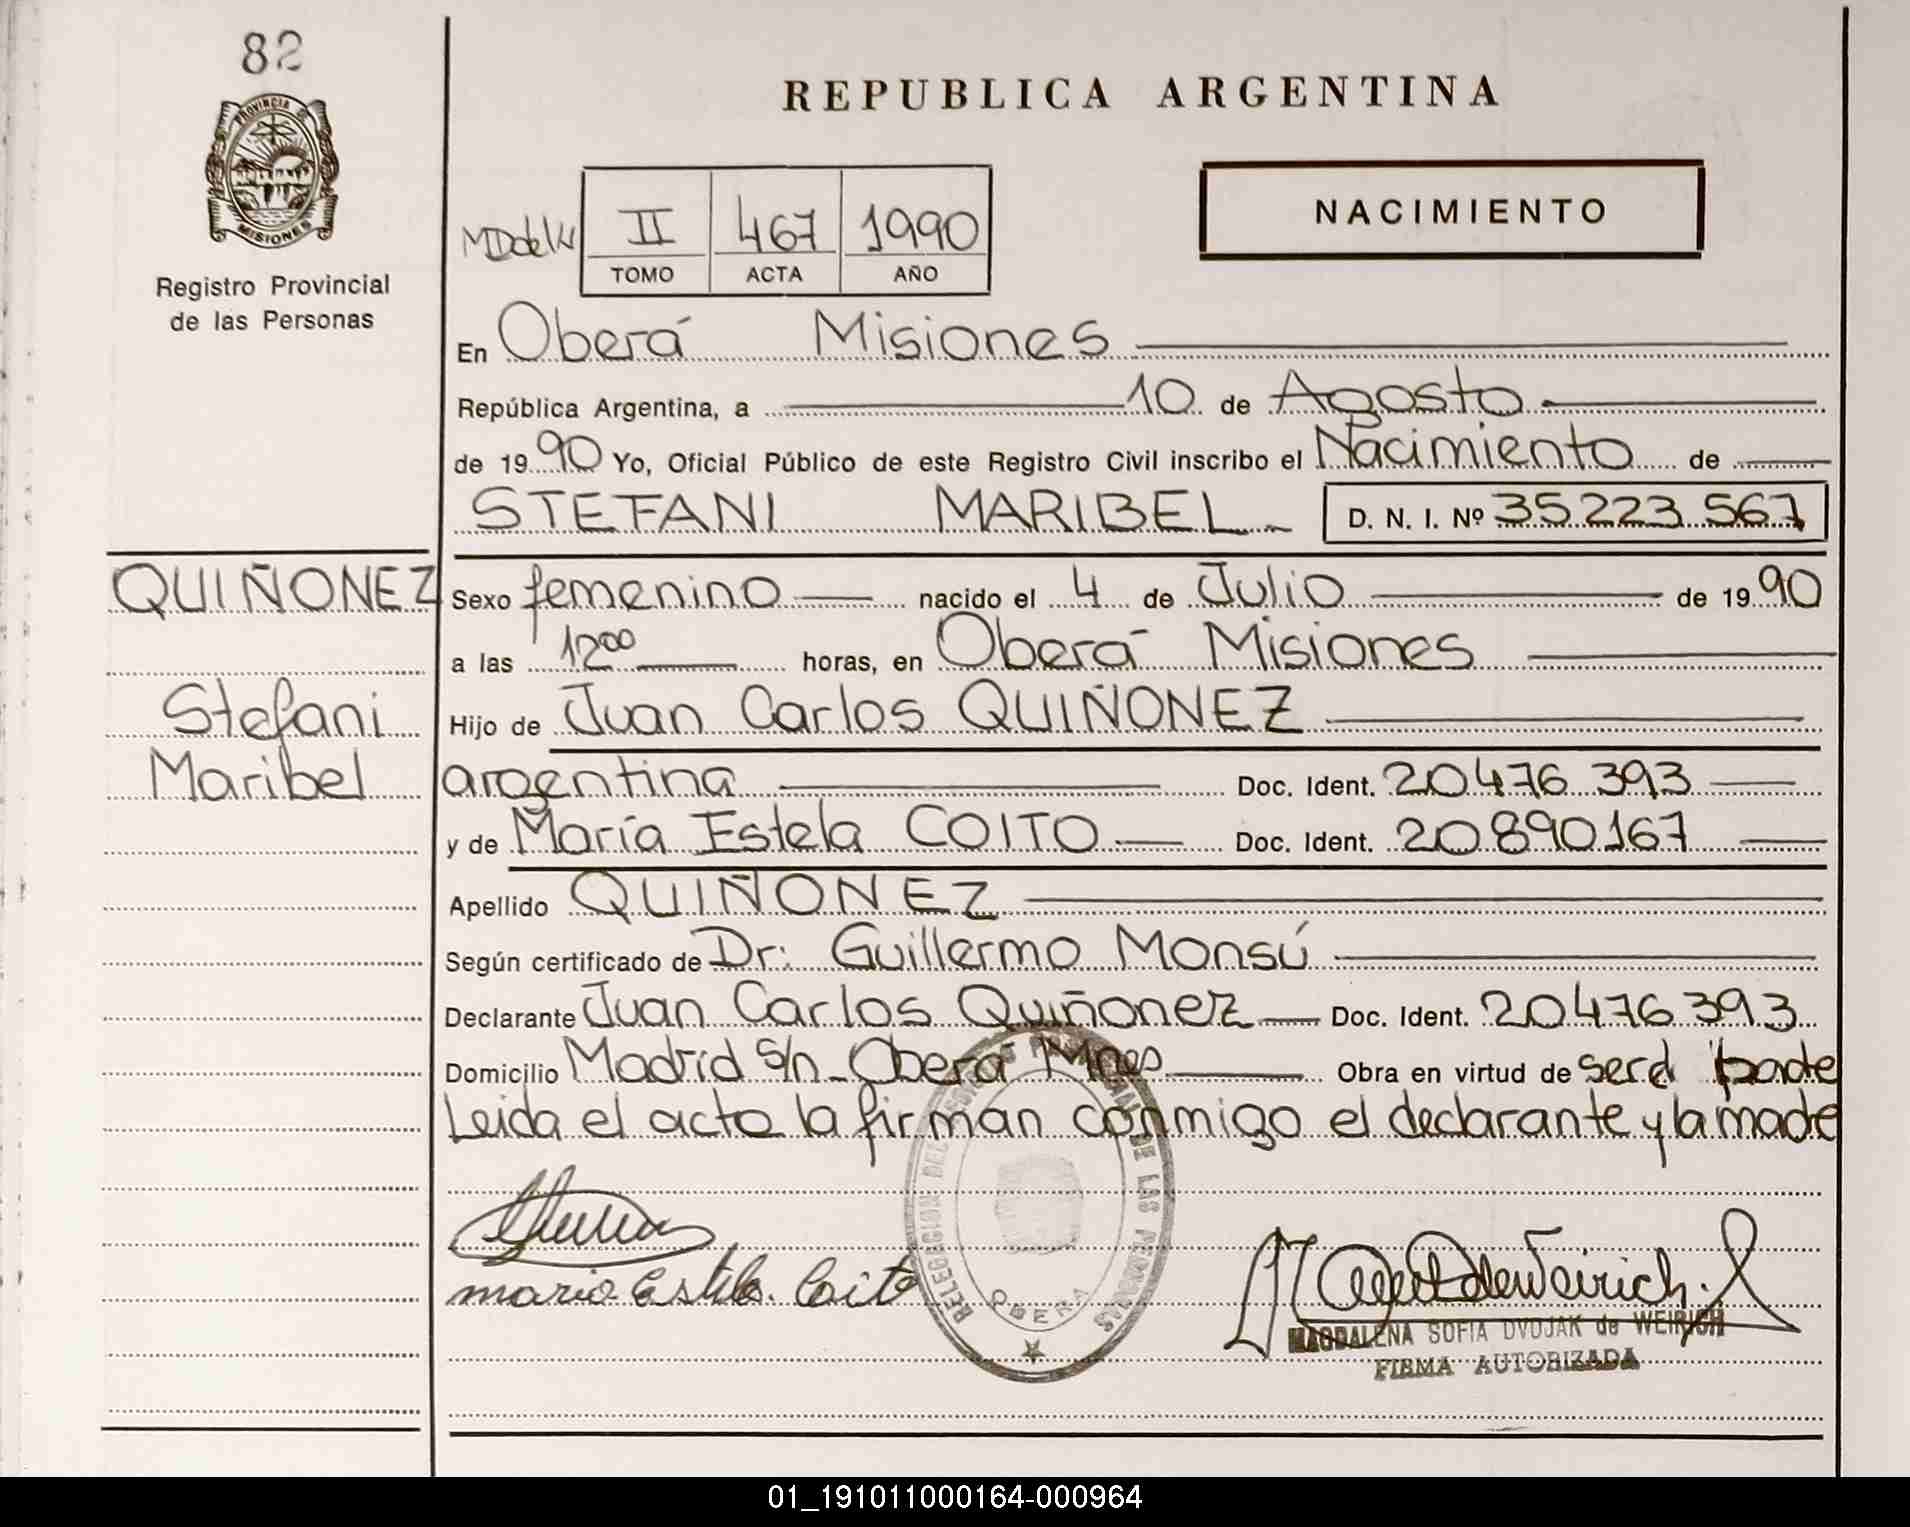 82
PROVINCIA DE
MISIONES
Registro Provincial
de las Personas
REPUBLICA ARGENTINA
NACIMIENTO
II 467 1990
TOMO ACTA AÑO
En Oberá Misiones
República Argentina, a 10 de Agosto
de 1990 Yo, Oficial Público de este Registro Civil inscribo el Nacimiento de
STEFANI MARIBEL D. N. I. Nº 35.223.567
QUIÑONEZ
Stefani
Maribel
Sexo femenino nacido el 4 de Julio de 1990
a las 12⁰⁰ horas, en Oberá Misiones
Hijo de Juan Carlos QUIÑONEZ
argentina Doc. Ident. 20.476.393
y de María Estela COITO Doc. Ident. 20.890.167
Apellido QUIÑONEZ
Según certificado de Dr: Guillermo Monsú
Declarante Juan Carlos Quiñonez Doc. Ident. 20.476.393
Domicilio Madrid s/n - Oberá Mnes Obra en virtud de ser el padre
Leida el acta la firman conmigo el declarante y la madre
maria Estela Coito
DE LAS PERSONAS
OBERA
MAGDALENA SOFIA DVOJAK de WEIRICH
FIRMA AUTORIZADA
01_191011000164-000964